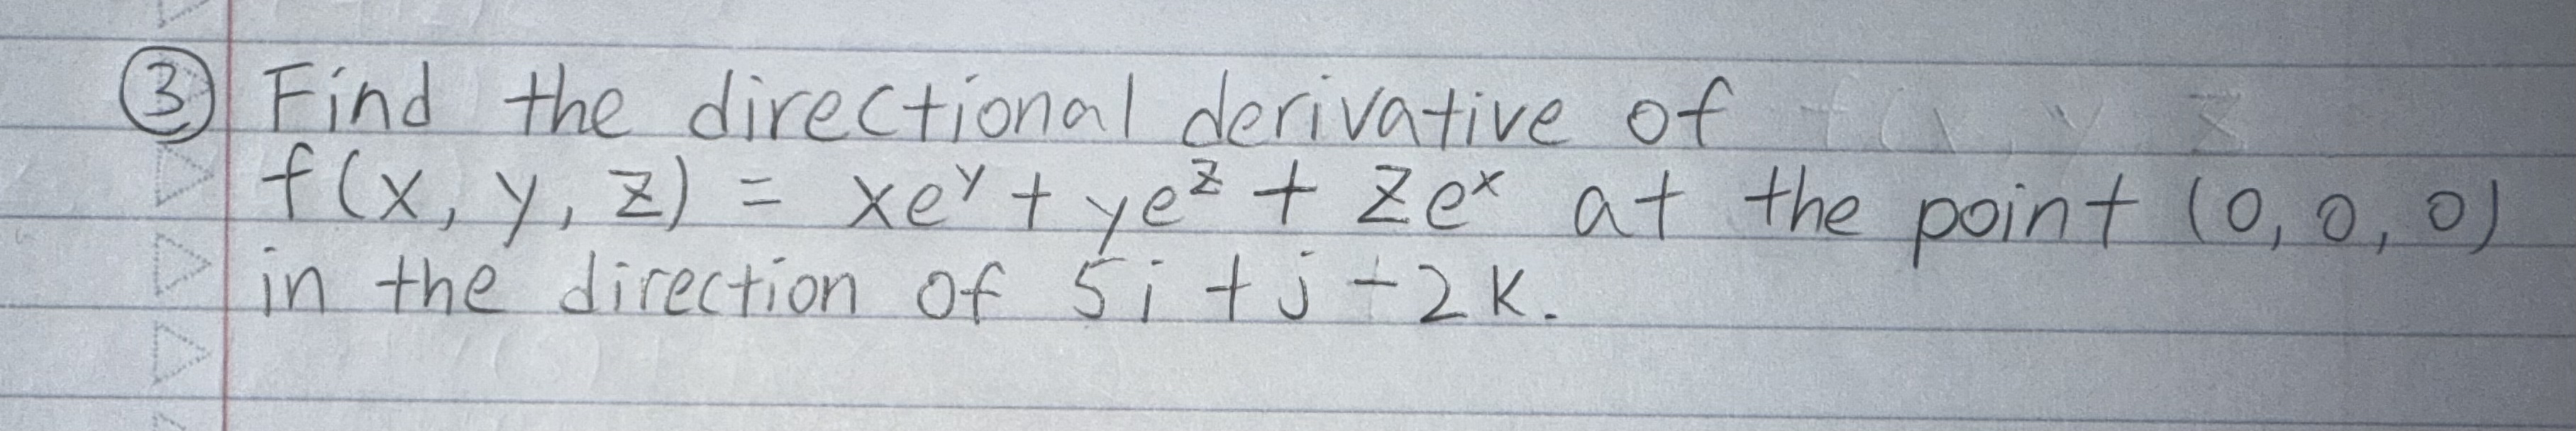 ③ Find the directional derivative of
f(x, y, z) = xeʸ + yeᶻ + zeˣ at the point (0, 0, 0)
in the direction of 5i + j - 2k.